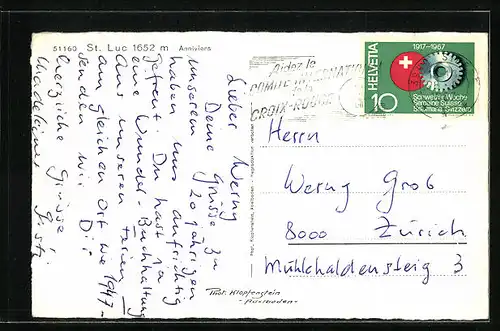 51160 St. Luc 1652 m Anniviers
Lieber Werny
Deine Grüsse zu
unserem 20 jährigen
haben uns aufrichtig
gefreut. Du hast ja
eine Wunder-Buchhaltung
Aus unseren Ferien
am gleichen Ort wie 1947
senden wir Dir
herzliche Grüsse
Aidez le
COMITÉ INTERNATIONAL
DE LA
CROIX-ROUGE
HELVETIA
1917-1967
10
Schweizer Woche
Semaine Suisse
Settimana Svizzera
Herrn
Werny Grob
8000 Zürich
Mühlhaldensteig 3
Phot. Klopfenstein
- Adelboden -